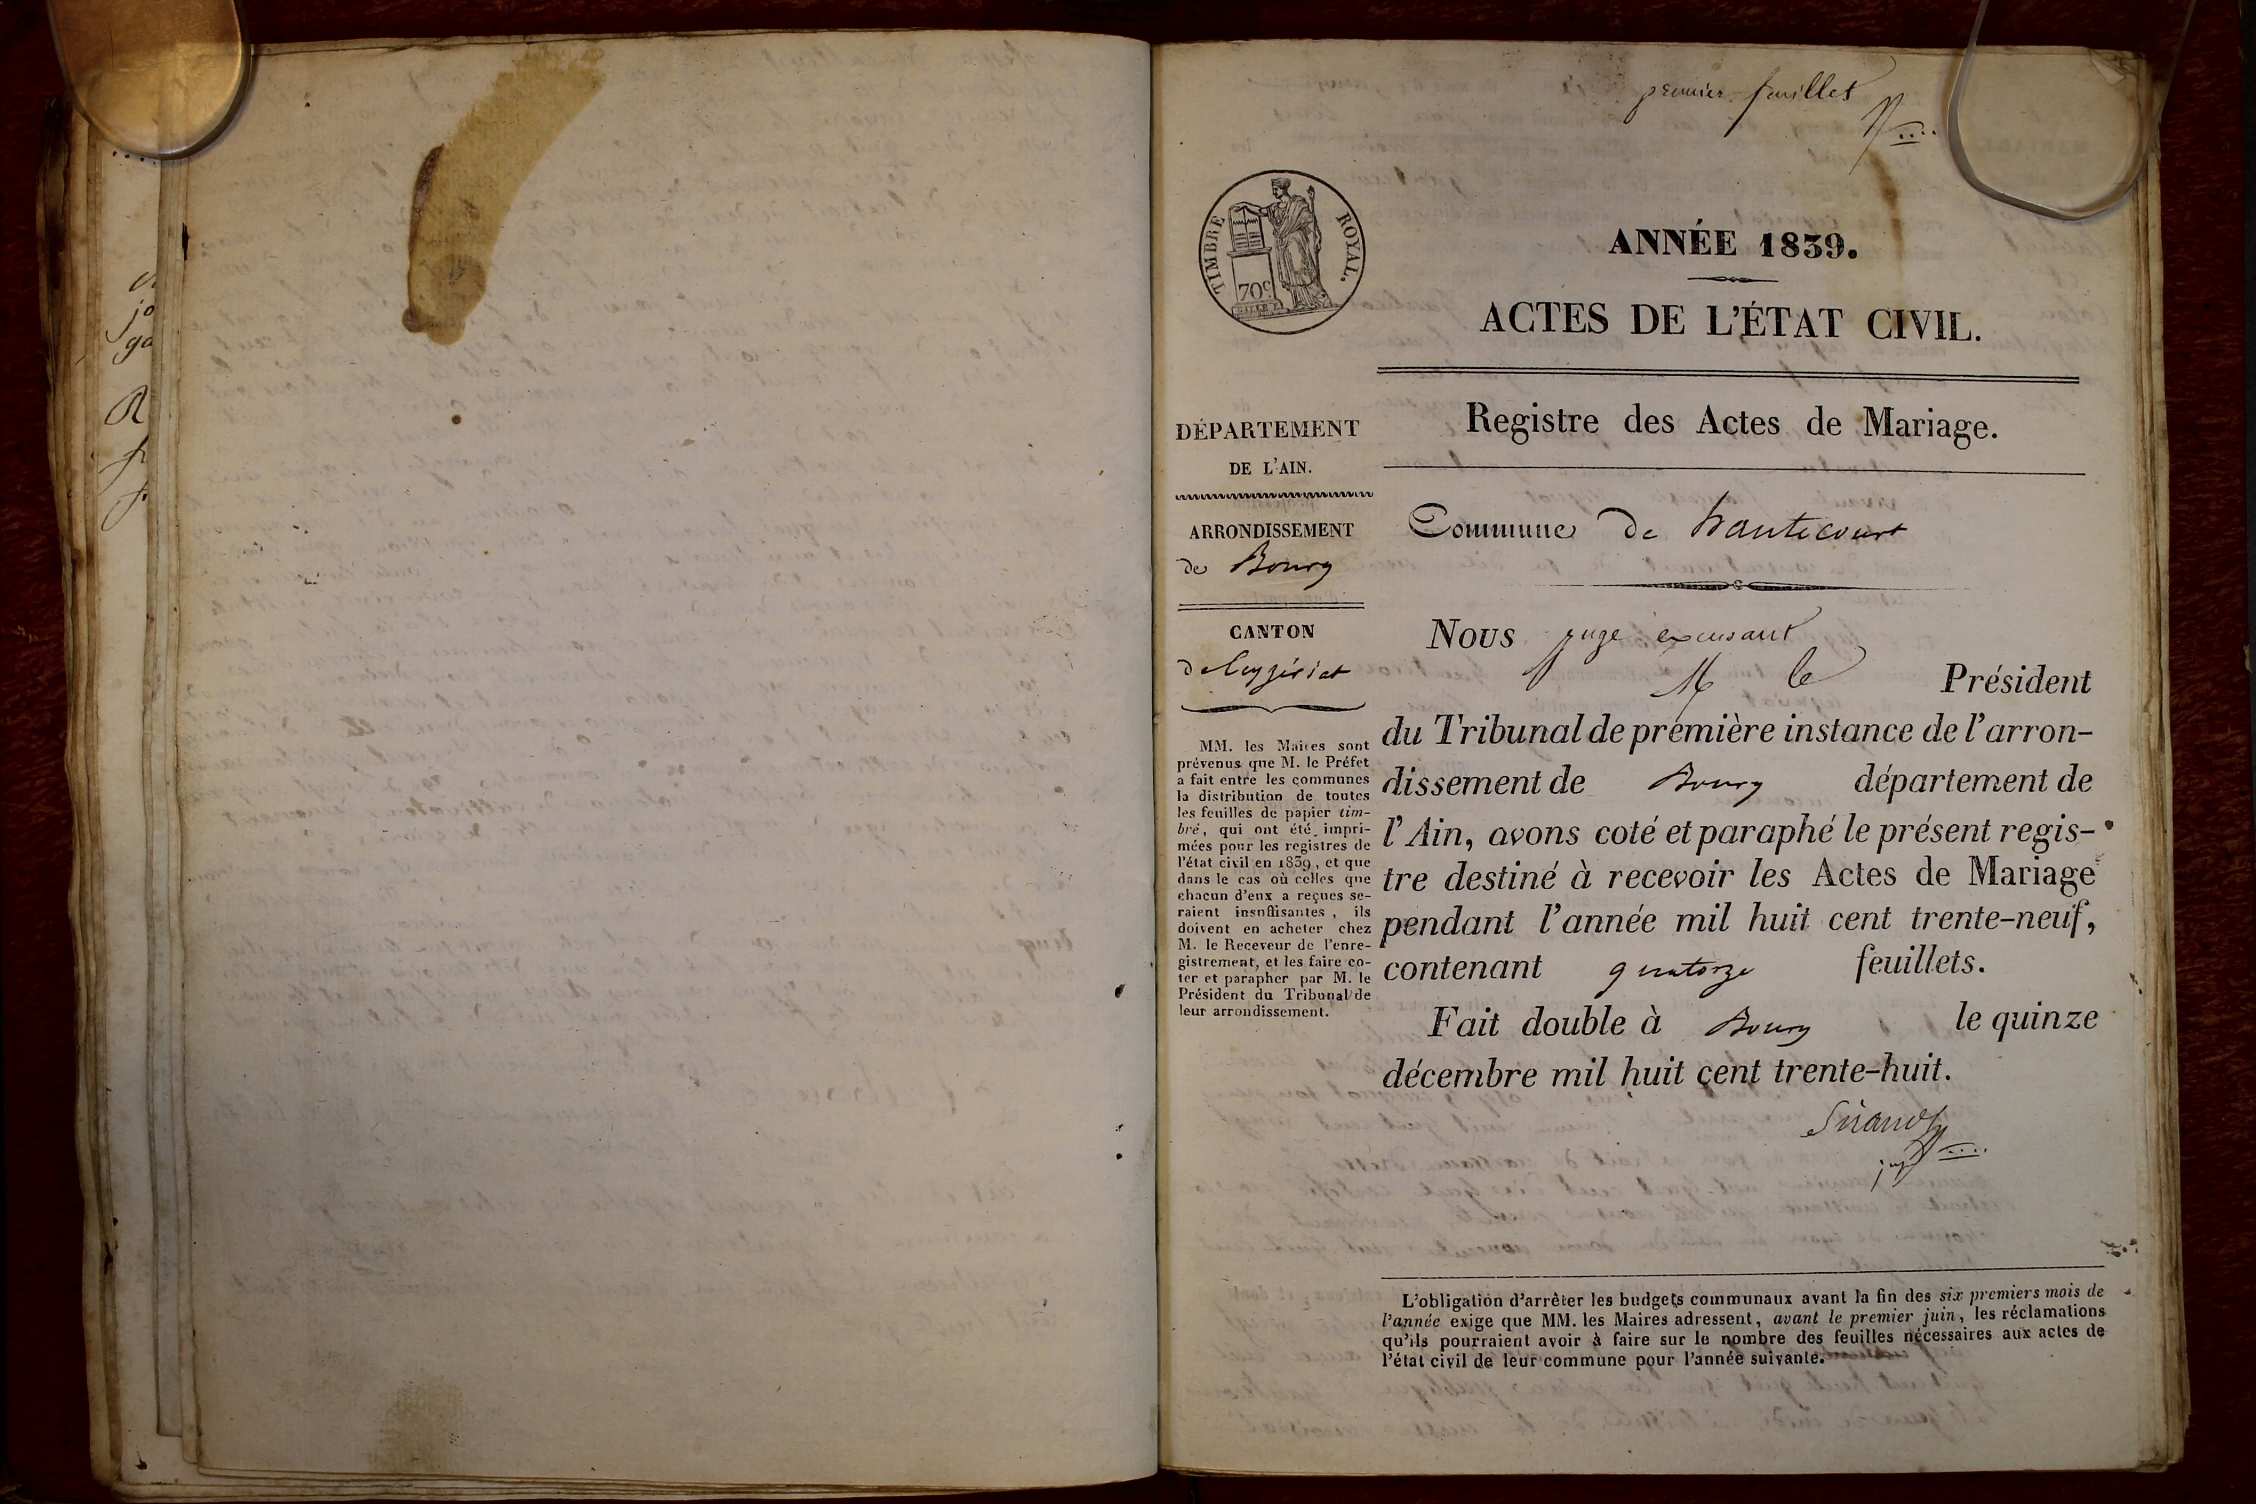 premier feuillet
TIMBRE ROYAL.
70c
ANNÉE 1839.
ACTES DE L'ÉTAT CIVIL.
Registre des Actes de Mariage.
DÉPARTEMENT
DE L'AIN.
ARRONDISSEMENT
de Bourg
CANTON
de Ceyzériat
MM. les Maires sont
prévenus que M. le Préfet
a fait entre les communes
la distribution de toutes
les feuilles de papier tim-
bré, qui ont été impri-
mées pour les registres de
l'état civil en 1839, et que
dans le cas où celles que
chacun d'eux a reçues se-
raient insuffisantes, ils
doivent en acheter chez
M. le Receveur de l'enre-
gistrement, et les faire co-
ter et parapher par M. le
Président du Tribunal de
leur arrondissement.
Commune de hautecourt
Nous juge excusant
M le Président
du Tribunal de première instance de l'arron-
dissement de Bourg département de
l'Ain, avons coté et paraphé le présent regis-
tre destiné à recevoir les Actes de Mariage
pendant l'année mil huit cent trente-neuf,
contenant quatorze feuillets.
Fait double à Bourg le quinze
décembre mil huit cent trente-huit.
juge
L'obligation d'arrêter les budgets communaux avant la fin des six premiers mois de
l'année exige que MM. les Maires adressent, avant le premier juin, les réclamations
qu'ils pourraient avoir à faire sur le nombre des feuilles nécessaires aux actes de
l'état civil de leur commune pour l'année suivante.